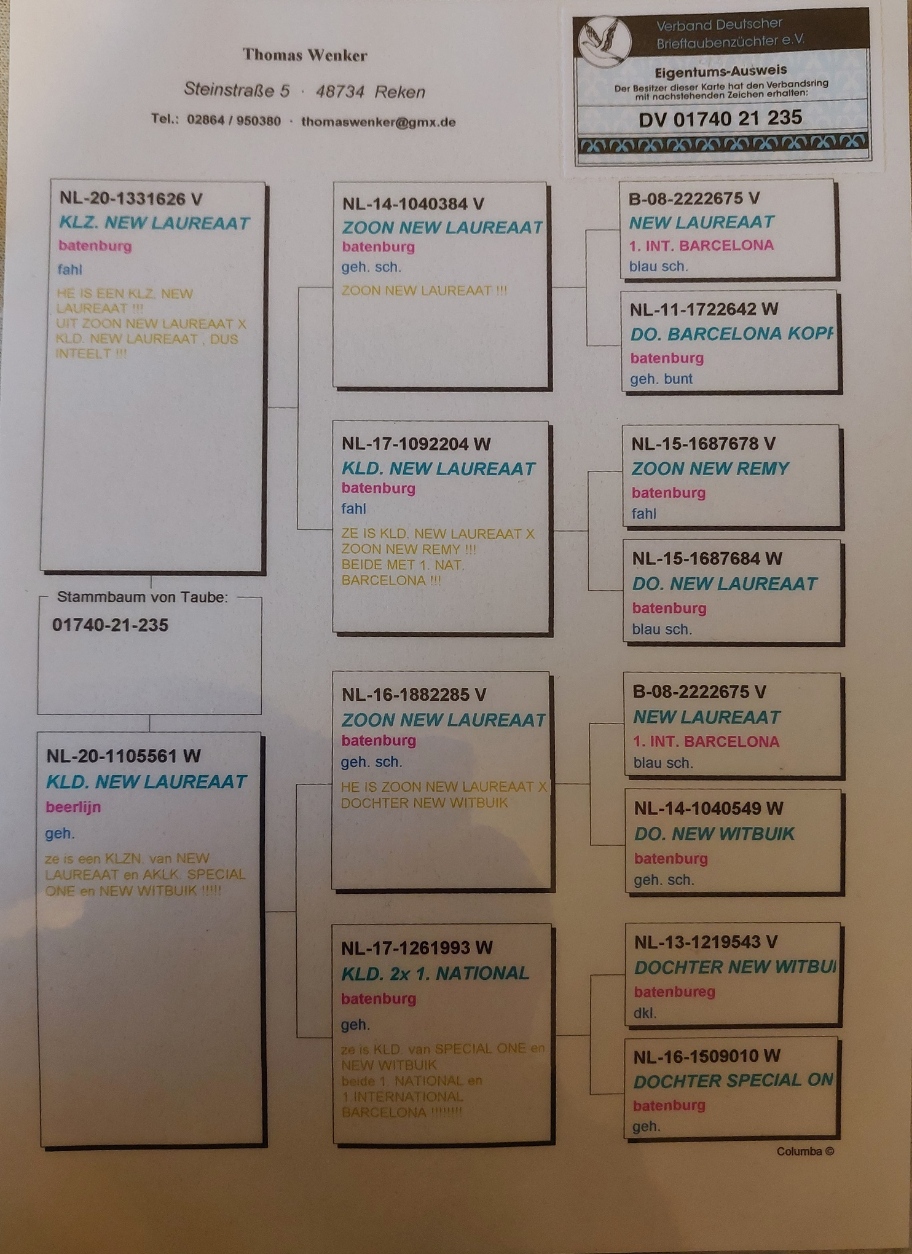 Thomas Wenker
Steinstraße 5 · 48734 Reken
Tel.: 02864 / 950380 · thomaswenker@gmx.de
Verband Deutscher
Brieftaubenzüchter e.V.
Eigentums-Ausweis
Der Besitzer dieser Karte hat den Verbandsring
mit nachstehenden Zeichen erhalten:
DV 01740 21 235
NL-20-1331626 V
KLZ. NEW LAUREAAT
batenburg
fahl
HE IS EEN KLZ. NEW
LAUREAAT !!!
UIT ZOON NEW LAUREAAT X
KLD. NEW LAUREAAT , DUS
INTEELT !!!
Stammbaum von Taube:
01740-21-235
NL-20-1105561 W
KLD. NEW LAUREAAT
beerlijn
geh.
ze is een KLZN. van NEW
LAUREAAT en AKLK. SPECIAL
ONE en NEW WITBUIK !!!!!
NL-14-1040384 V
ZOON NEW LAUREAAT
batenburg
geh. sch.
ZOON NEW LAUREAAT !!!
NL-17-1092204 W
KLD. NEW LAUREAAT
batenburg
fahl
ZE IS KLD. NEW LAUREAAT X
ZOON NEW REMY !!!
BEIDE MET 1. NAT.
BARCELONA !!!
NL-16-1882285 V
ZOON NEW LAUREAAT
batenburg
geh. sch.
HE IS ZOON NEW LAUREAAT X
DOCHTER NEW WITBUIK
NL-17-1261993 W
KLD. 2x 1. NATIONAL
batenburg
geh.
ze is KLD. van SPECIAL ONE en
NEW WITBUIK
beide 1. NATIONAL en
1 INTERNATIONAL
BARCELONA !!!!!!!!
B-08-2222675 V
NEW LAUREAAT
1. INT. BARCELONA
blau sch.
NL-11-1722642 W
DO. BARCELONA KOPF
batenburg
geh. bunt
NL-15-1687678 V
ZOON NEW REMY
batenburg
fahl
NL-15-1687684 W
DO. NEW LAUREAAT
batenburg
blau sch.
B-08-2222675 V
NEW LAUREAAT
1. INT. BARCELONA
blau sch.
NL-14-1040549 W
DO. NEW WITBUIK
batenburg
geh. sch.
NL-13-1219543 V
DOCHTER NEW WITBUI
batenbureg
dkl.
NL-16-1509010 W
DOCHTER SPECIAL ON
batenburg
geh.
Columba ©